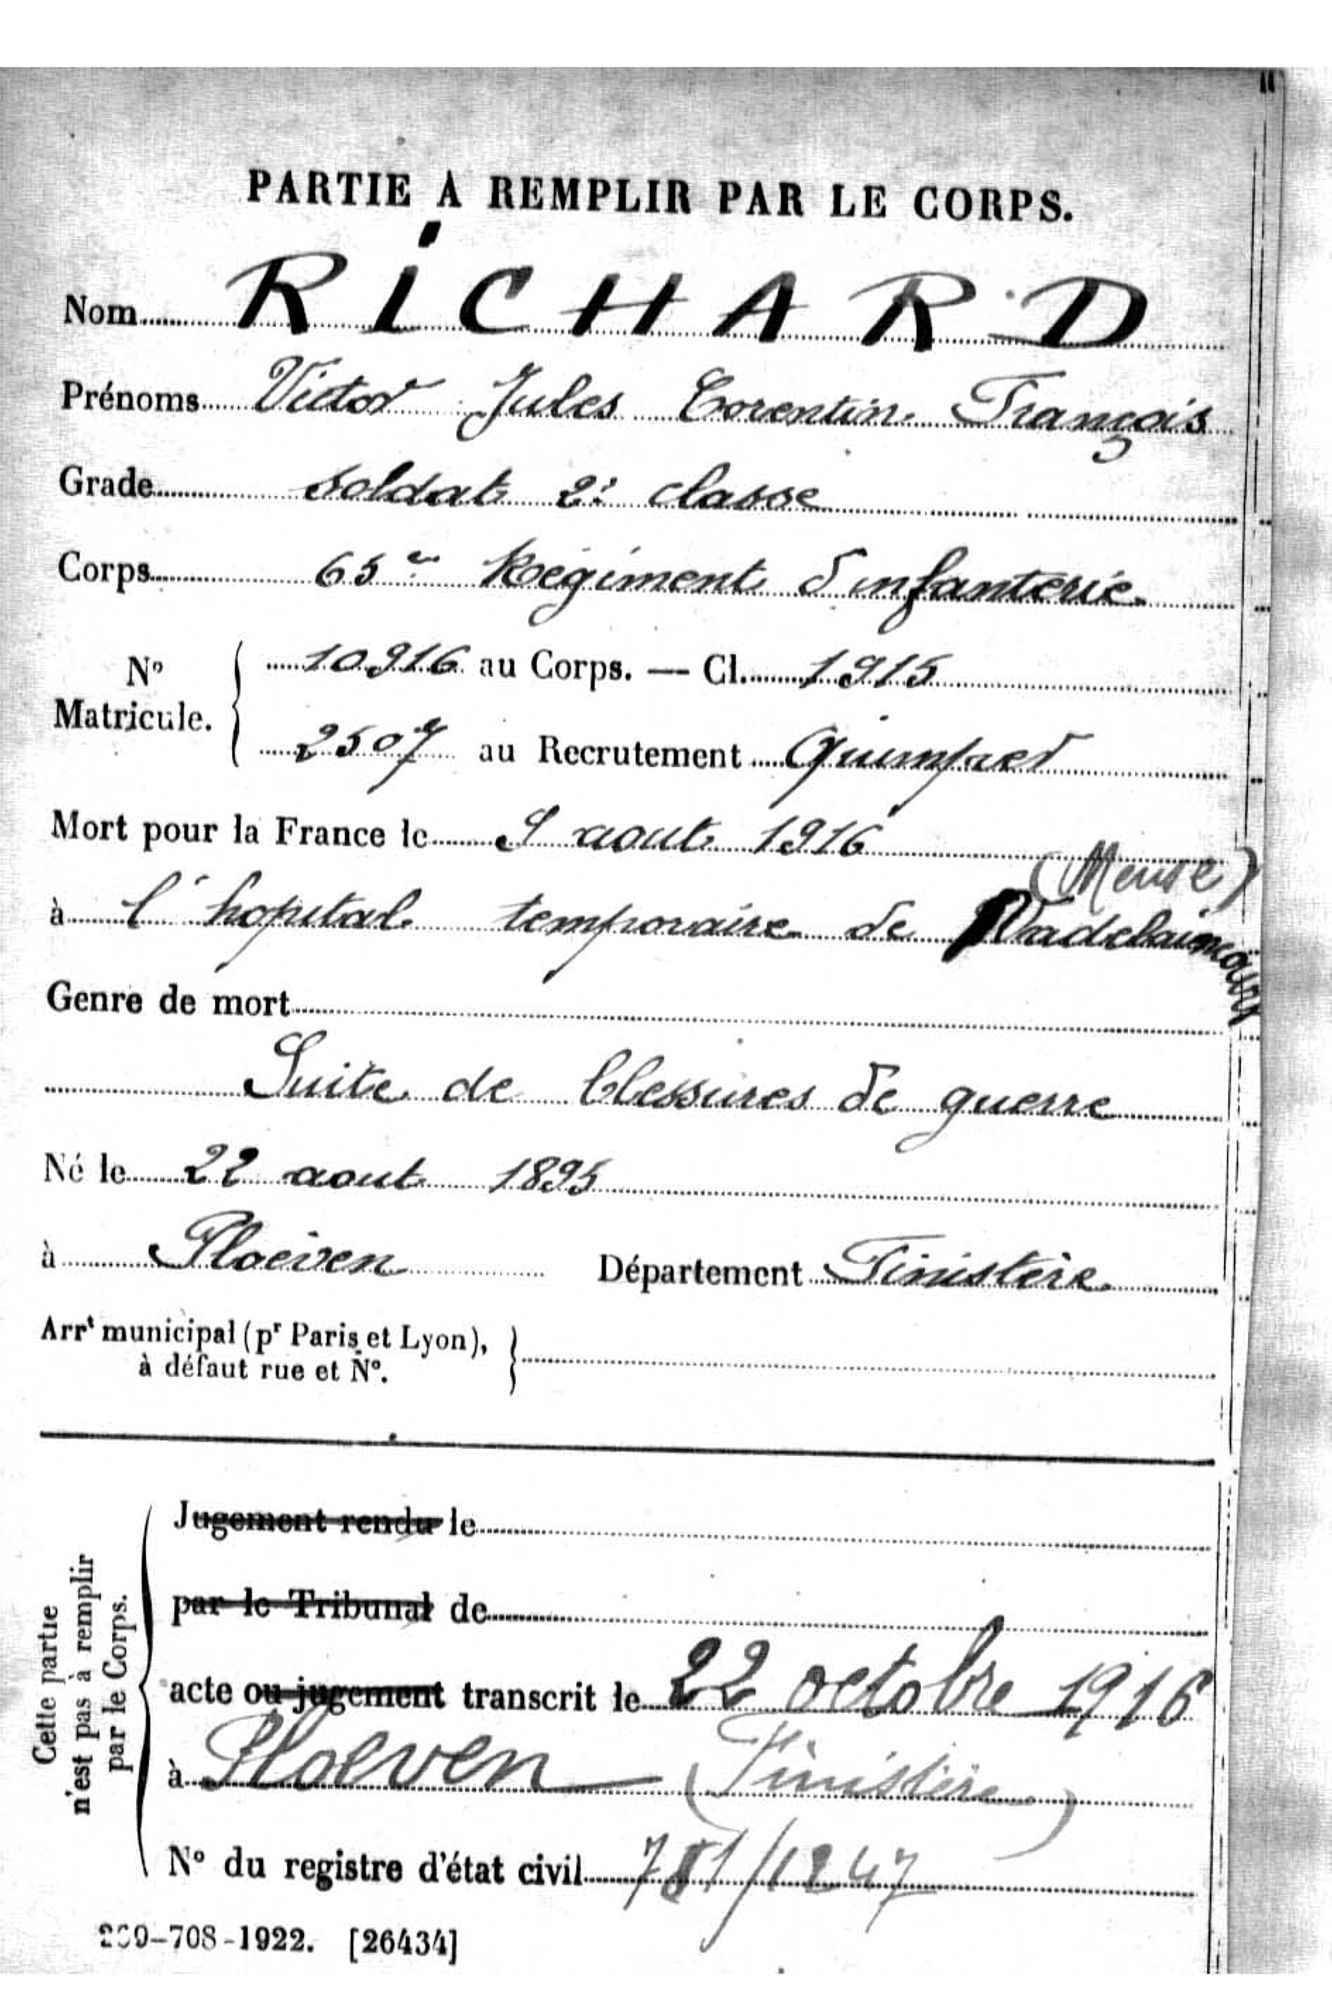 PARTIE A REMPLIR PAR LE CORPS.
Nom RICHARD
Prénoms Victor Jules Corentin François
Grade soldat 2e classe
Corps 65e Régiment d'infanterie
No Matricule. { 10916 au Corps. — Cl. 1915
2507 au Recrutement Quimper
Mort pour la France le 9 aout 1916
(Meuse)
à l'hopital temporaire de Vadelaincourt
Genre de mort
Suite de blessures de guerre
Né le 22 aout 1895
à Ploeven Département Finistère
Arrt municipal (pr Paris et Lyon),
à défaut rue et No.
Cette partie
n'est pas à remplir
par le Corps.
Jugement rendu le
par le Tribunal de
acte ou jugement transcrit le 22 octobre 1916
à Ploeven (Finistère)
No du registre d'état civil
-708-1922. [26434]